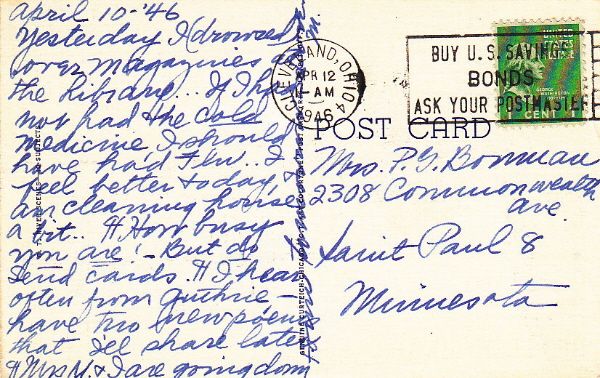 April 10-'46
Yesterday I drowsed
over magazines at
the library... If I had
not had the cold
medicine I should
have had Flu.. I
feel better today, &
am cleaning house
a bit.. # How busy
you are! - But do
send cards. # I hear
often from Guthrie -
have two new poems
that I'll share later
# Mrs M. & I are going down
CLEVELAND, OHIO
APR 12
11-AM
1946
BUY U.S. SAVINGS
BONDS
ASK YOUR POSTMASTER
UNITED
STATES
POSTAGE
GEORGE
WASHINGTON
1 CENT 1
POST CARD
Mrs. P. G. Bowman
2308 Commonwealth
Ave.
Saint Paul 8
Minnesota